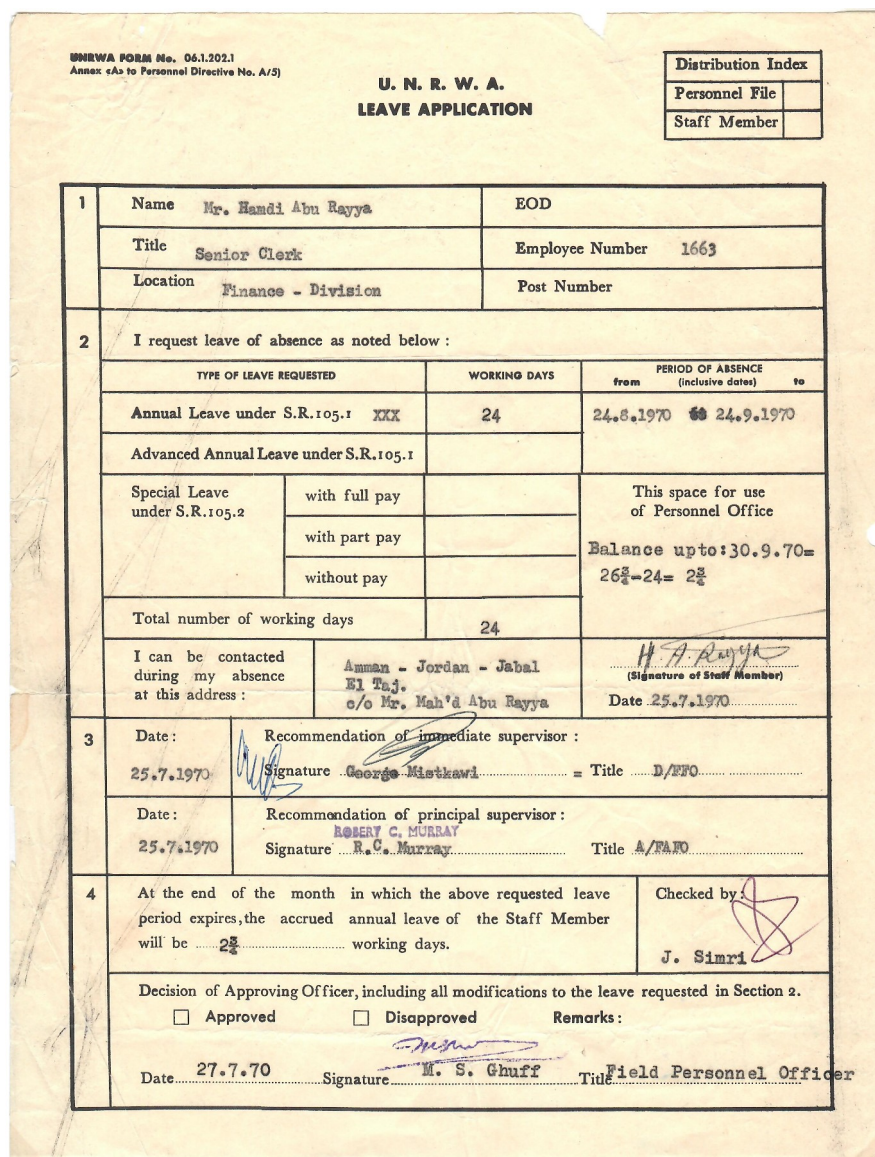 UNRWA FORM No. 06.1.202.1
Annex «A» to Personnel Directive No. A/5)
U. N. R. W. A.
LEAVE APPLICATION
Distribution Index
Personnel File
Staff Member
1
Name Mr. Hamdi Abu Rayya
EOD
Title Senior Clerk
Employee Number 1663
Location Finance - Division
Post Number
2
I request leave of absence as noted below :
TYPE OF LEAVE REQUESTED
WORKING DAYS
PERIOD OF ABSENCE
from (inclusive dates) to
Annual Leave under S.R.105.1 XXX
24
24.8.1970 24.9.1970
Advanced Annual Leave under S.R.105.1
Special Leave
under S.R.105.2
with full pay
with part pay
without pay
This space for use
of Personnel Office
Balance upto:30.9.70=
26¾-24= 2¾
Total number of working days
24
I can be contacted
during my absence
at this address :
Amman - Jordan - Jabal
El Taj.
c/o Mr. Mah'd Abu Rayya
H. A. Rayya
(Signature of Staff Member)
Date 25.7.1970
3
Date :
25.7.1970
Recommendation of immediate supervisor :
Signature George Mistkawi = Title D/FFO
Date :
25.7.1970
Recommendation of principal supervisor :
ROBERT C. MURRAY
Signature R.C. Murray Title A/FAFO
4
At the end of the month in which the above requested leave
period expires, the accrued annual leave of the Staff Member
will be 2¾ working days.
Checked by:
J. Simri
Decision of Approving Officer, including all modifications to the leave requested in Section 2.
Approved Disapproved Remarks :
Date 27.7.70 Signature M. S. Ghuff Title Field Personnel Officer